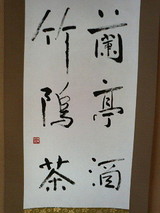 蘭亭酒
竹隝茶